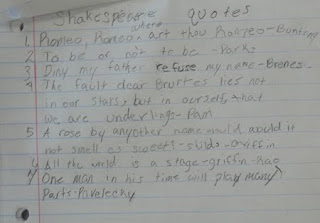 Shakespeare quotes
where
1. Romeo, Romeo art thou Romeo - Bunting
2 To be or not to be - Parks
3 Diny my father refuse my name - Brenes
4 The fault dear Brutes lies not
in our stars, but in ourself, that
we are underlings - Pam
5 A rose by anyother name would
not smell as sweet - - griffin
6 All the world is a stage - griffin -
7 One man in his time will play many
Parts -